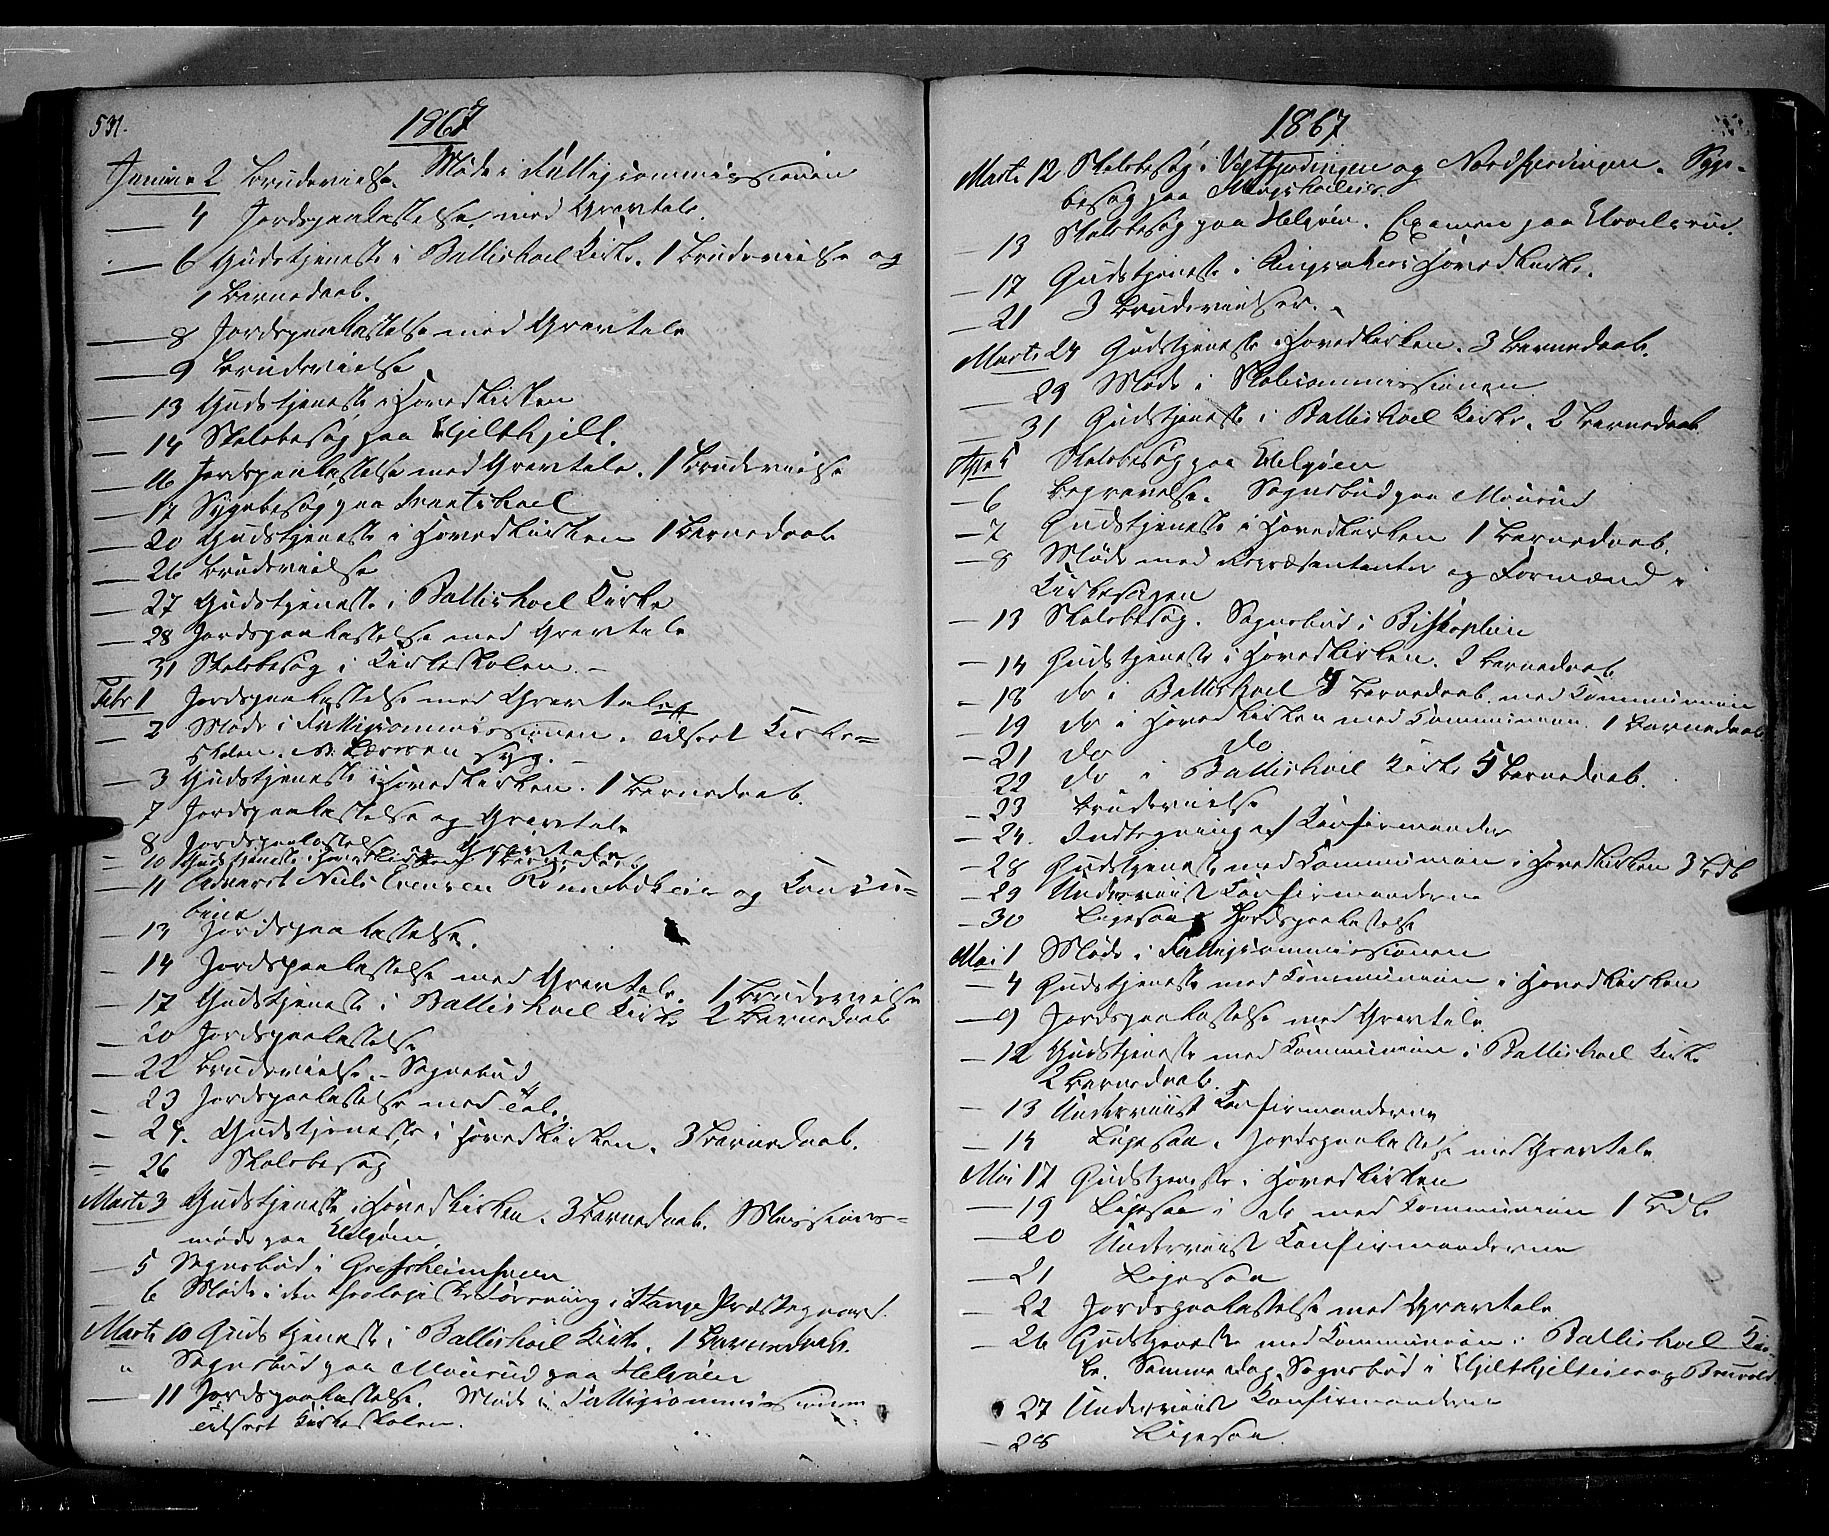 531.
1867
Januar 2 Brudevielse. Møde i Fattigcommissionen
4 Jordspaakastelse med Gravtale.
6 Gudstjeneste i Ballishoel Kirke. 1 Brudevielse og
1 Barnedaab.
8 Jordspaakastelse med Gravtale
9 Brudevielse
13 Gudstjeneste i Hovedkirken
14 Skolebesøg paa
16 Jordspaakastelse med Gravtale. 1 Brudevielse
17 Sygebesøg paa
20 Gudstjeneste i Hovedkirken 1 Barnedaab
26 Brudevielse
27 Gudstjeneste i Ballishoel Kirke
28 Jordspaakastelse med Gravtale
31 Skolebesøg i Kirkeskolen. –
Febr 1 Jordspaakastelse med Gravtale
2 Møde i Fattigcommissionen. Tilseet Kirke=
skolen. Læreren syg. –
3 Gudstjeneste i Hovedkirken. 1 Barnedaab.
7 Jordspaakastelse og Gravtale
8 Jordspaakastelse og Gravtale
10 Gudstjeneste i Hovedkirken 1 Barnedaab
11 Advaret Niels Evensen og Concu=
bine
13 Jordspaakastelse.
14 Jordspaakastelse med Gravtale. 1 Brudevielse
17 Gudstjeneste i Ballishoel Kirke 2 Barnedaab
20 Jordspaakastelse
22 Brudevielse. – Sognebud
23 Jordspaakastelse med Tale.
24. Gudstjeneste i Hovedkirken. 3 Barnedaab.
26 Skolebesøg
Marts 3 Gudstjeneste i Hovedkirken. 3 Barnedaab. Missions=
møde paa Helgøen
5 Sognebud i
6 Møde i den theologiske Forening i Stange Præstegaard.
Marts 10 Gudstjeneste i Ballishoel Kirke. 1 Barnedaab.
" Sognebud paa Mourud paa Helgøen
11 Jordspaakastelse. Møde i Fattigcommissionen
Tilseet Kirkeskolen.
1867
Marts 12 Skolebesøg i Vestfjerdingen og Nordfjerdingen. Syge-
besøg paa
13 Skolebesøg paa Helgøen. Examen paa Hovelsrud.
17 Gudstjeneste i Ringsakers Hovedkirke.
21 3 Brudevielser.
Marts 24 Gudstjeneste i Hovedkirken. 3 Barnedaab.
29 Møde i Skolecommissionen
31 Gudstjeneste i Ballishoel Kirke. 2 Barnedaab
Apr 5 Skolebesøg paa Helgøen
6 Begravelse. Sognebud paa Mourud
7 Gudstjeneste i Hovedkirken 1 Barnedaab.
8 Møde med Repræsentanter og Formænd i
Kirkesagen
13 Skolebesøg. Sognebud i Biskoplien
14 Gudstjeneste i Hovedkirken. 2 Barnedaab
18 do i Ballishoel 3 Barnedaab med Communion
19 do i Hovedkirken med Communion. 1 Barnedaab
21 do do
22 do i Ballishoel Kirke 5 Barnedaab.
23 Brudevielse
24. Indtegning af Confirmander
28 Gudstjeneste med Communion i Hovedkirken 3 Bdb
29 Underviist Confirmanderne
30 Ligesaa Jordspaakastelse
Mai 1 Møde i Fattigcommissionen
4 Gudstjeneste med Communion i Hovedkirken
9 Jordspaakastelse med Gravtale
12 Gudstjeneste med Communion i Ballishoel Kirke
2 Barnedaab.
13 Underviist Confirmanderne
14 Ligesaa. Jordspaakastelse med Gravtale
Mai 17 Gudstjeneste i Hovedkirken
19 Ligesaa i do med Communion 1 Bdb
20 Underviist Confirmanderne
21 Ligesaa
22 Jordspaakastelse med Gravtale
26 Gudstjeneste med Communion i Ballishoel Kir-
ke. Samme Dag Sognebud i
27 Underviist Confirmanderne
28 Ligesaa.